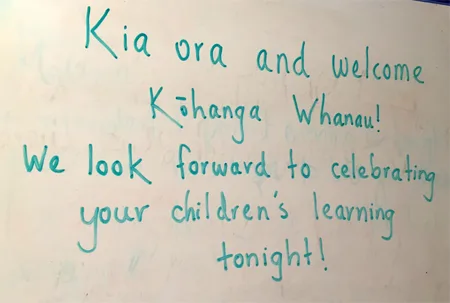 Kia ora and welcome
Kōhanga Whanau!
We look forward to celebrating
your children's learning
tonight!